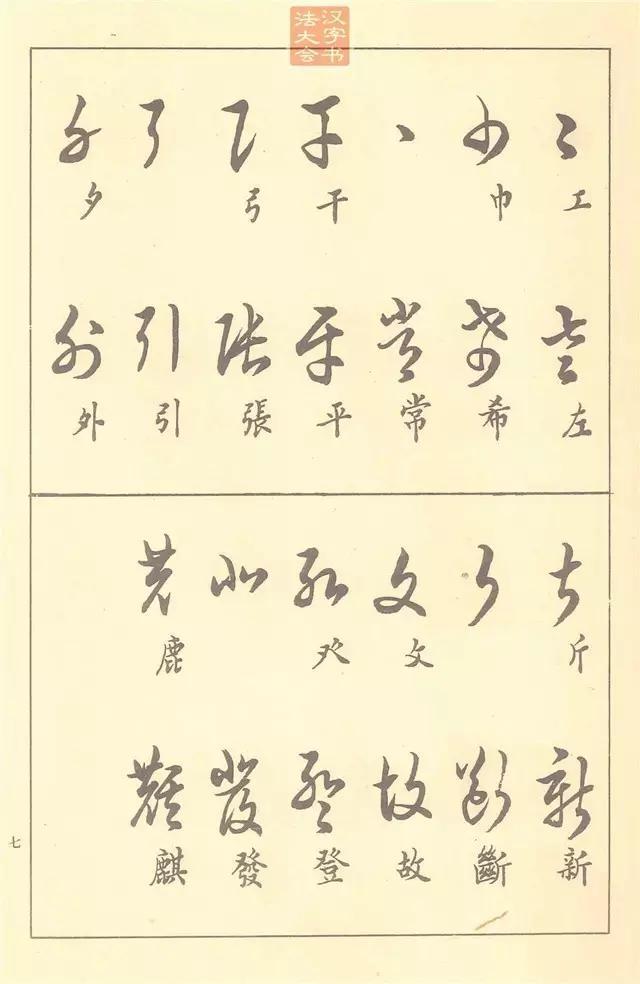 汉字书
法大会
工 巾 干 弓 夕
左 希 常 平 張 引 外
斤 文 癶 鹿
新 斷 故 登 發 麒
七